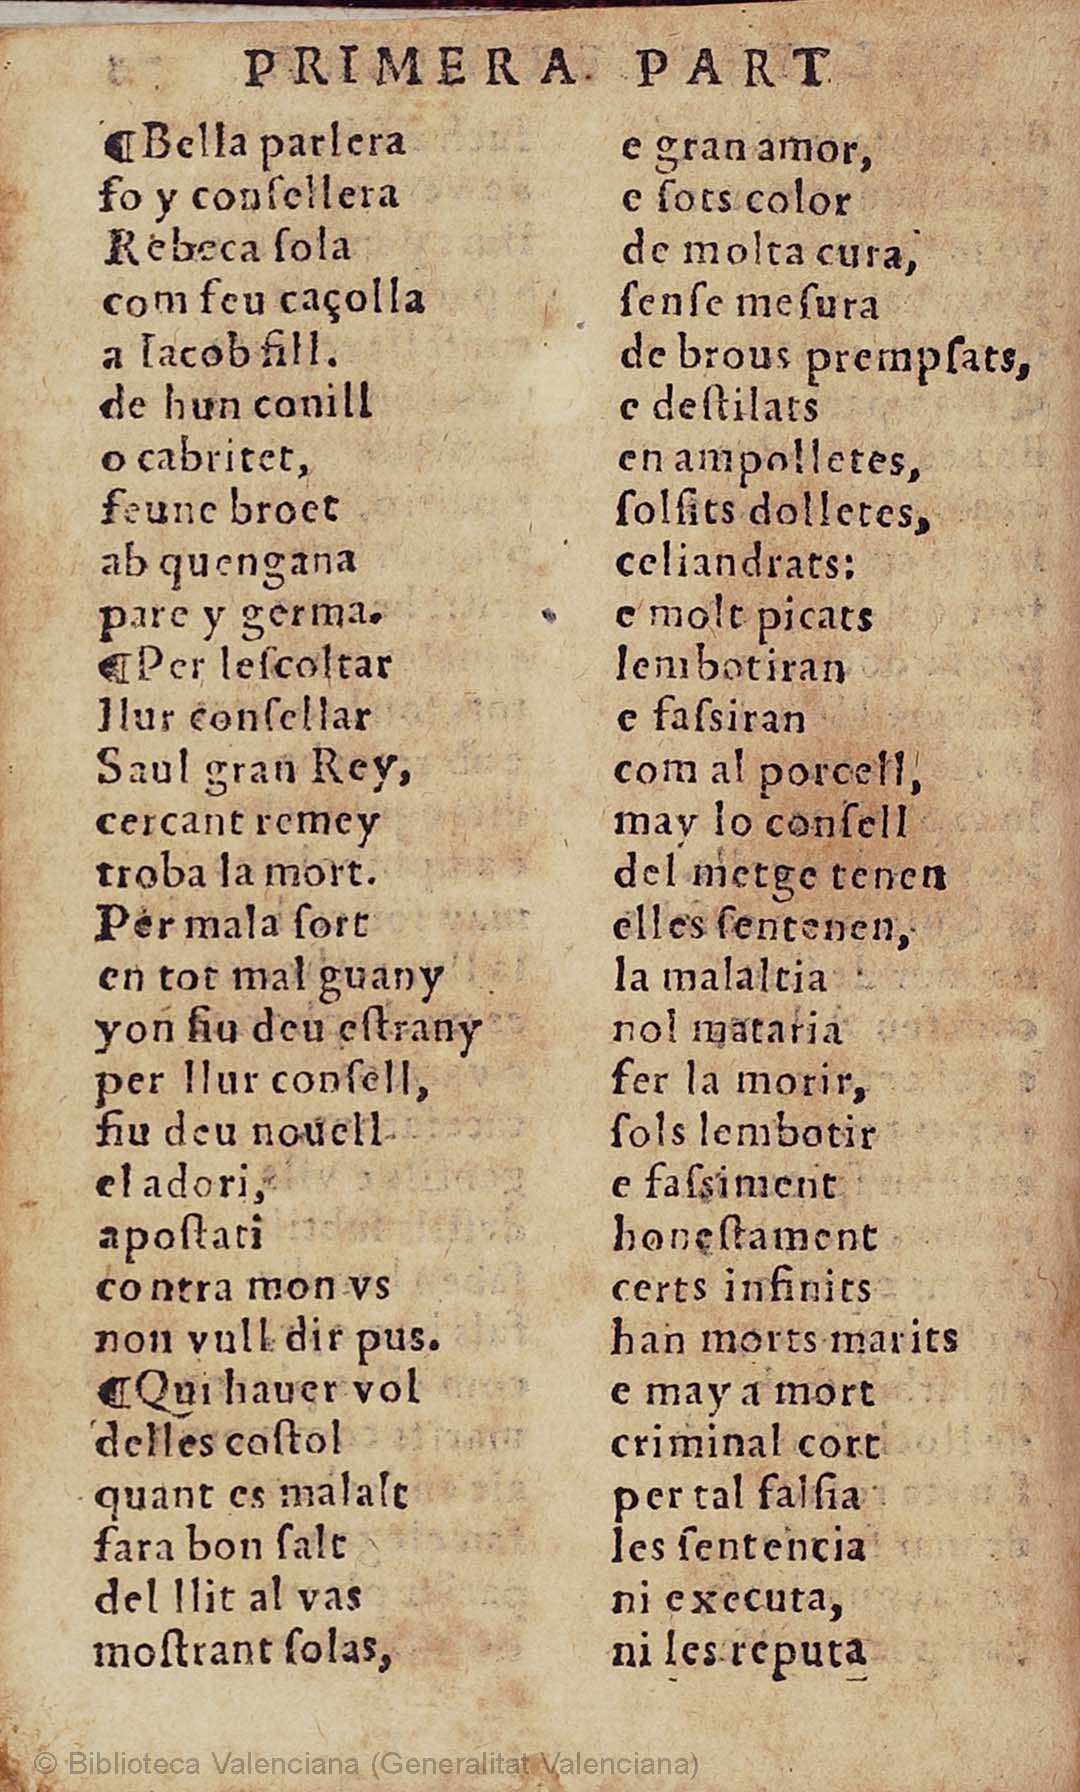 PRIMERA PART
¶Bella parlera
fo y conſellera
Rebeca ſola
com feu caçolla
a Iacob fill.
de hun conill
o cabritet,
feune broet
ab quengana
pare y germa.
¶Per leſcoltar
llur conſellar
Saul gran Rey,
cercant remey
troba la mort.
Per mala ſort
en tot mal guany
yon fiu deu eſtrany
per llur conſell,
fiu deu nouell
el adori,
apoſtati
contra mon vs
non vull dir pus.
¶Qui hauer vol
delles coſtol
quant es malalt
fara bon ſalt
del llit al vas
moſtrant ſolas,
e gran amor,
e ſots color
de molta cura,
ſenſe meſura
de brous prempſats,
e deſtilats
en ampolletes,
ſolſits dolletes,
celiandrats:
e molt picats
lembotiran
e faſsiran
com al porcell,
may lo conſell
del metge tenen
elles ſentenen,
la malaltia
nol mataria
fer la morir,
ſols lembotir
e faſsiment
honeſtament
certs infinits
han morts marits
e may a mort
criminal cort
per tal falſia
les ſentencia
ni executa,
ni les reputa
© Biblioteca Valenciana (Generalitat Valenciana)